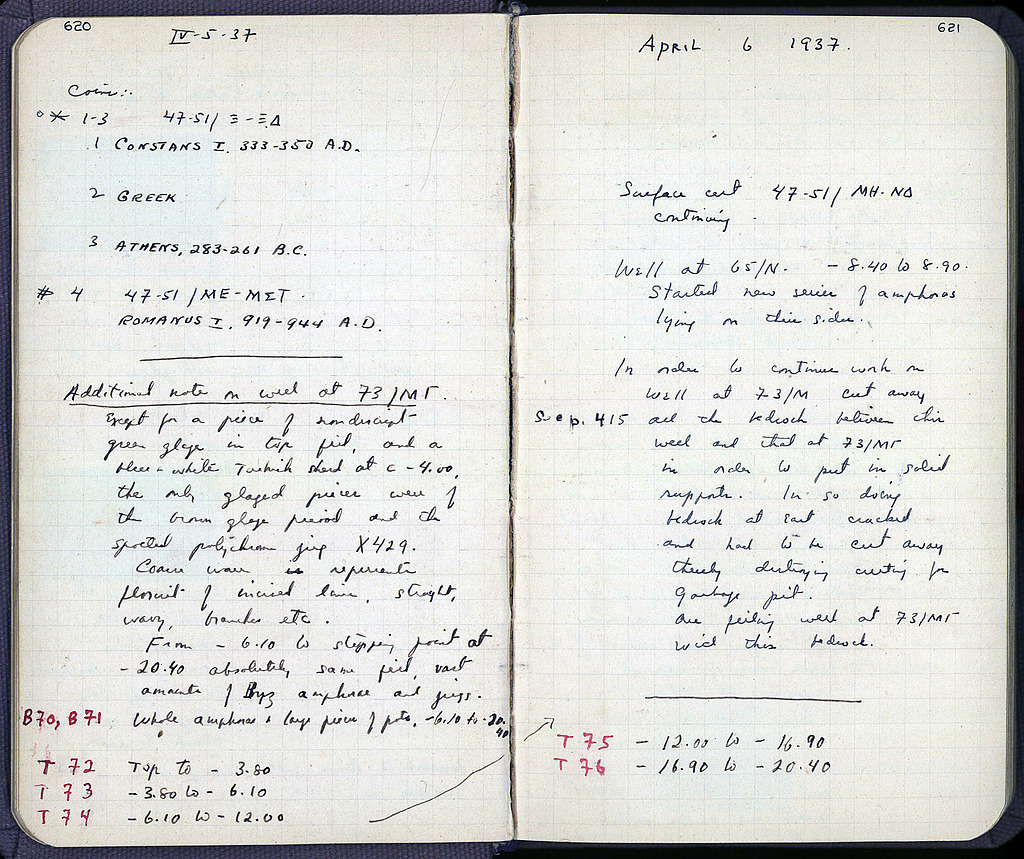 620
IV-5-37
Coins:.
1-3 47-51/ Ξ-ΞΔ
1 CONSTANS I. 333-350 A.D.
2 GREEK
3 ATHENS, 283-261 B.C.
# 4 47-51/ME-MET.
ROMANUS I. 919-944 A.D.
Additional note on well at 73/MΓ.
Except for a piece of nondescript
green glaze in top fill, and a
blue + white Turkish sherd at c -4.00,
the only glazed pieces were of
the brown glaze period and the
spotted polychrome jug X429.
Coarse ware is represents
floruit of incised lines, straight,
wavy, branches etc.
From -6.10 to stopping point at
-20.40 absolutely same fill, vast
amounts of Byz amphorae and jugs.
B70, B71 Whole amphoras + large pieces of pots, -6.10 to -20.
40
T 72 Top to - 3.80
T 73 -3.80 to - 6.10
T 74 -6.10 to -12.00
621
APRIL 6 1937.
Surface cut 47-51/ MH-NΔ
continuing.
Well at 65/N. - 8.40 to 8.90.
Started new series of amphoras
lying on their sides.
In order to continue work on
well at 73/M cut away
See p. 415 all the bedrock between this
well and that at 73/MΓ
in order to put in solid
supports. In so doing
bedrock at east cracked
and had to be cut away
thereby destroying cutting for
garbage pit.
Are filling well at 73/MΓ
with this bedrock.
T 75 - 12.00 to - 16.90
T 76 - 16.90 to - 20.40